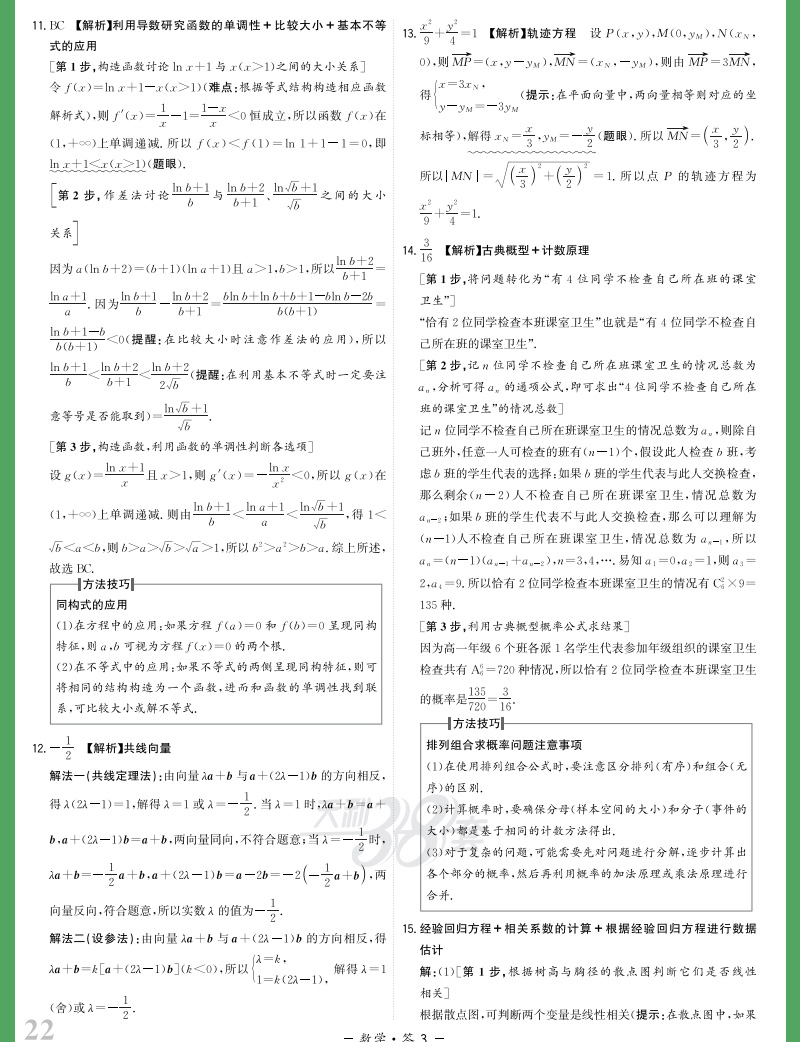 11. BC 【解析】利用导数研究函数的单调性＋比较大小＋基本不等
式的应用
[第 1 步,构造函数讨论 ln x+1 与 x(x>1)之间的大小关系]
令 f(x)=ln x+1-x(x>1)(难点:根据等式结构构造相应函数
解析式),则 f′(x)=1/x-1=(1-x)/x<0 恒成立,所以函数 f(x)在
(1,+∞)上单调递减. 所以 f(x)<f(1)=ln 1+1-1=0,即
ln x+1<x(x>1)(题眼).
[第 2 步,作差法讨论(ln b+1)/b 与(ln b+2)/(b+1)、(ln √b+1)/√b 之间的大小
关系]
因为 a(ln b+2)=(b+1)(ln a+1)且 a>1,b>1,所以(ln b+2)/(b+1)=
(ln a+1)/a. 因为(ln b+1)/b-(ln b+2)/(b+1)=(bln b+ln b+b+1-bln b-2b)/(b(b+1))=
(ln b+1-b)/(b(b+1))<0(提醒:在比较大小时注意作差法的应用),所以
(ln b+1)/b<(ln b+2)/(b+1)<(ln b+2)/(2√b)(提醒:在利用基本不等式时一定要注
意等号是否能取到)=(ln √b+1)/√b.
[第 3 步,构造函数,利用函数的单调性判断各选项]
设 g(x)=(ln x+1)/x且 x>1,则 g′(x)=-ln x/x²<0,所以 g(x)在
(1,+∞)上单调递减. 则由(ln b+1)/b<(ln a+1)/a<(ln √b+1)/√b,得 1<
√b<a<b,则 b>a>√b>√a>1,所以 b²>a²>b>a. 综上所述,
故选 BC.
方法技巧
同构式的应用
(1)在方程中的应用:如果方程 f(a)=0 和 f(b)=0 呈现同构
特征,则 a,b 可视为方程 f(x)=0 的两个根.
(2)在不等式中的应用:如果不等式的两侧呈现同构特征,则可
将相同的结构构造为一个函数,进而和函数的单调性找到联
系,可比较大小或解不等式.
12. -1/2 【解析】共线向量
解法一(共线定理法):由向量 λa+b 与 a+(2λ-1)b 的方向相反,
得 λ(2λ-1)=1,解得 λ=1 或 λ=-1/2. 当 λ=1 时,λa+b=a+
b,a+(2λ-1)b=a+b,两向量同向,不符合题意;当 λ=-1/2时,
λa+b=-1/2a+b,a+(2λ-1)b=a-2b=-2(-1/2a+b),两
向量反向,符合题意,所以实数 λ 的值为-1/2.
解法二(设参法):由向量 λa+b 与 a+(2λ-1)b 的方向相反,得
λa+b=k[a+(2λ-1)b](k<0),所以{λ=k, 1=k(2λ-1), 解得 λ=1
(舍)或 λ=-1/2.
13. x²/9+y²/4=1 【解析】轨迹方程 设 P(x,y),M(0,y_M),N(x_N,
0),则 MP→=(x,y-y_M),MN→=(x_N,-y_M),则由 MP→=3MN→,
得{x=3x_N, y-y_M=-3y_M (提示:在平面向量中,两向量相等则对应的坐
标相等),解得 x_N=x/3,y_M=-y/2(题眼). 所以 MN→=(x/3,y/2).
所以|MN|=√((x/3)²+(y/2)²)=1. 所以点 P 的轨迹方程为
x²/9+y²/4=1.
14. 3/16 【解析】古典概型＋计数原理
[第 1 步,将问题转化为“有 4 位同学不检查自己所在班的课室
卫生”]
“恰有 2 位同学检查本班课室卫生”也就是“有 4 位同学不检查自
己所在班的课室卫生”.
[第 2 步,记 n 位同学不检查自己所在班课室卫生的情况总数为
aₙ,分析可得 aₙ 的通项公式,即可求出“4 位同学不检查自己所在
班的课室卫生”的情况总数]
记 n 位同学不检查自己所在班课室卫生的情况总数为 aₙ,则除自
己班外,任意一人可检查的班有(n-1)个,假设此人检查 b 班,考
虑 b 班的学生代表的选择:如果 b 班的学生代表与此人交换检查,
那么剩余(n-2)人不检查自己所在班课室卫生,情况总数为
aₙ₋₂;如果 b 班的学生代表不与此人交换检查,那么可以理解为
(n-1)人不检查自己所在班课室卫生,情况总数为 aₙ₋₁,所以
aₙ=(n-1)(aₙ₋₁+aₙ₋₂),n=3,4,…. 易知 a₁=0,a₂=1,则 a₃=
2,a₄=9. 所以恰有 2 位同学检查本班课室卫生的情况有 C₆²×9=
135 种.
[第 3 步,利用古典概型概率公式求结果]
因为高一年级 6 个班各派 1 名学生代表参加年级组织的课室卫生
检查共有 A₆⁶=720 种情况,所以恰有 2 位同学检查本班课室卫生
的概率是135/720=3/16.
方法技巧
排列组合求概率问题注意事项
(1)在使用排列组合公式时,要注意区分排列(有序)和组合(无
序)的区别.
(2)计算概率时,要确保分母(样本空间的大小)和分子(事件的
大小)都是基于相同的计数方法得出.
(3)对于复杂的问题,可能需要先对问题进行分解,逐步计算出
各个部分的概率,然后再利用概率的加法原理或乘法原理进行
合并.
15. 经验回归方程＋相关系数的计算＋根据经验回归方程进行数据
估计
解:(1)[第 1 步,根据树高与胸径的散点图判断它们是否线性
相关]
根据散点图,可判断两个变量是线性相关(提示:在散点图中,如果
22
— 数学·答 3 —